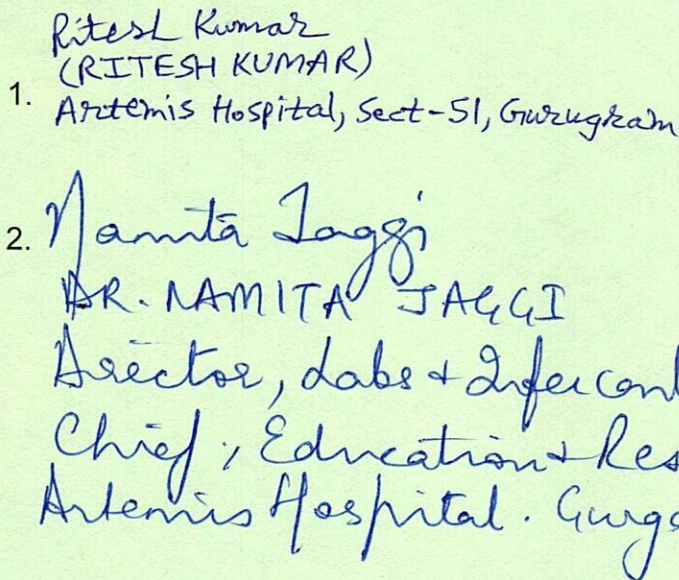 1. Ritesh Kumar
(RITESH KUMAR)
Artemis Hospital, Sect-51, Gurugram
2. Namita Jaggi
DR. NAMITA JAGGI
Director, Labs + Infec cont
Chief, Education + Res
Artemis Hospital. Gurga